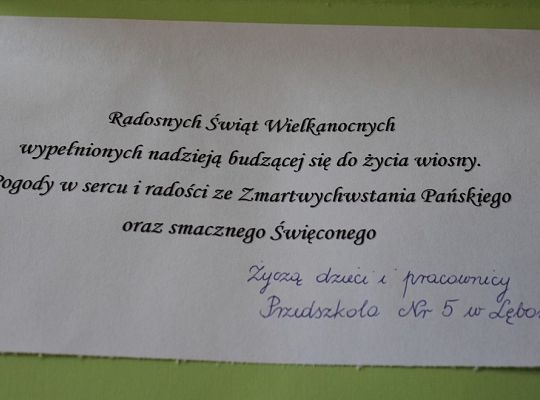 Radosnych Świąt Wielkanocnych
wypełnionych nadzieją budzącej się do życia wiosny.
Pogody w sercu i radości ze Zmartwychwstania Pańskiego
oraz smacznego Święconego
Życzą dzieci i pracownicy
Przedszkola Nr 5 w